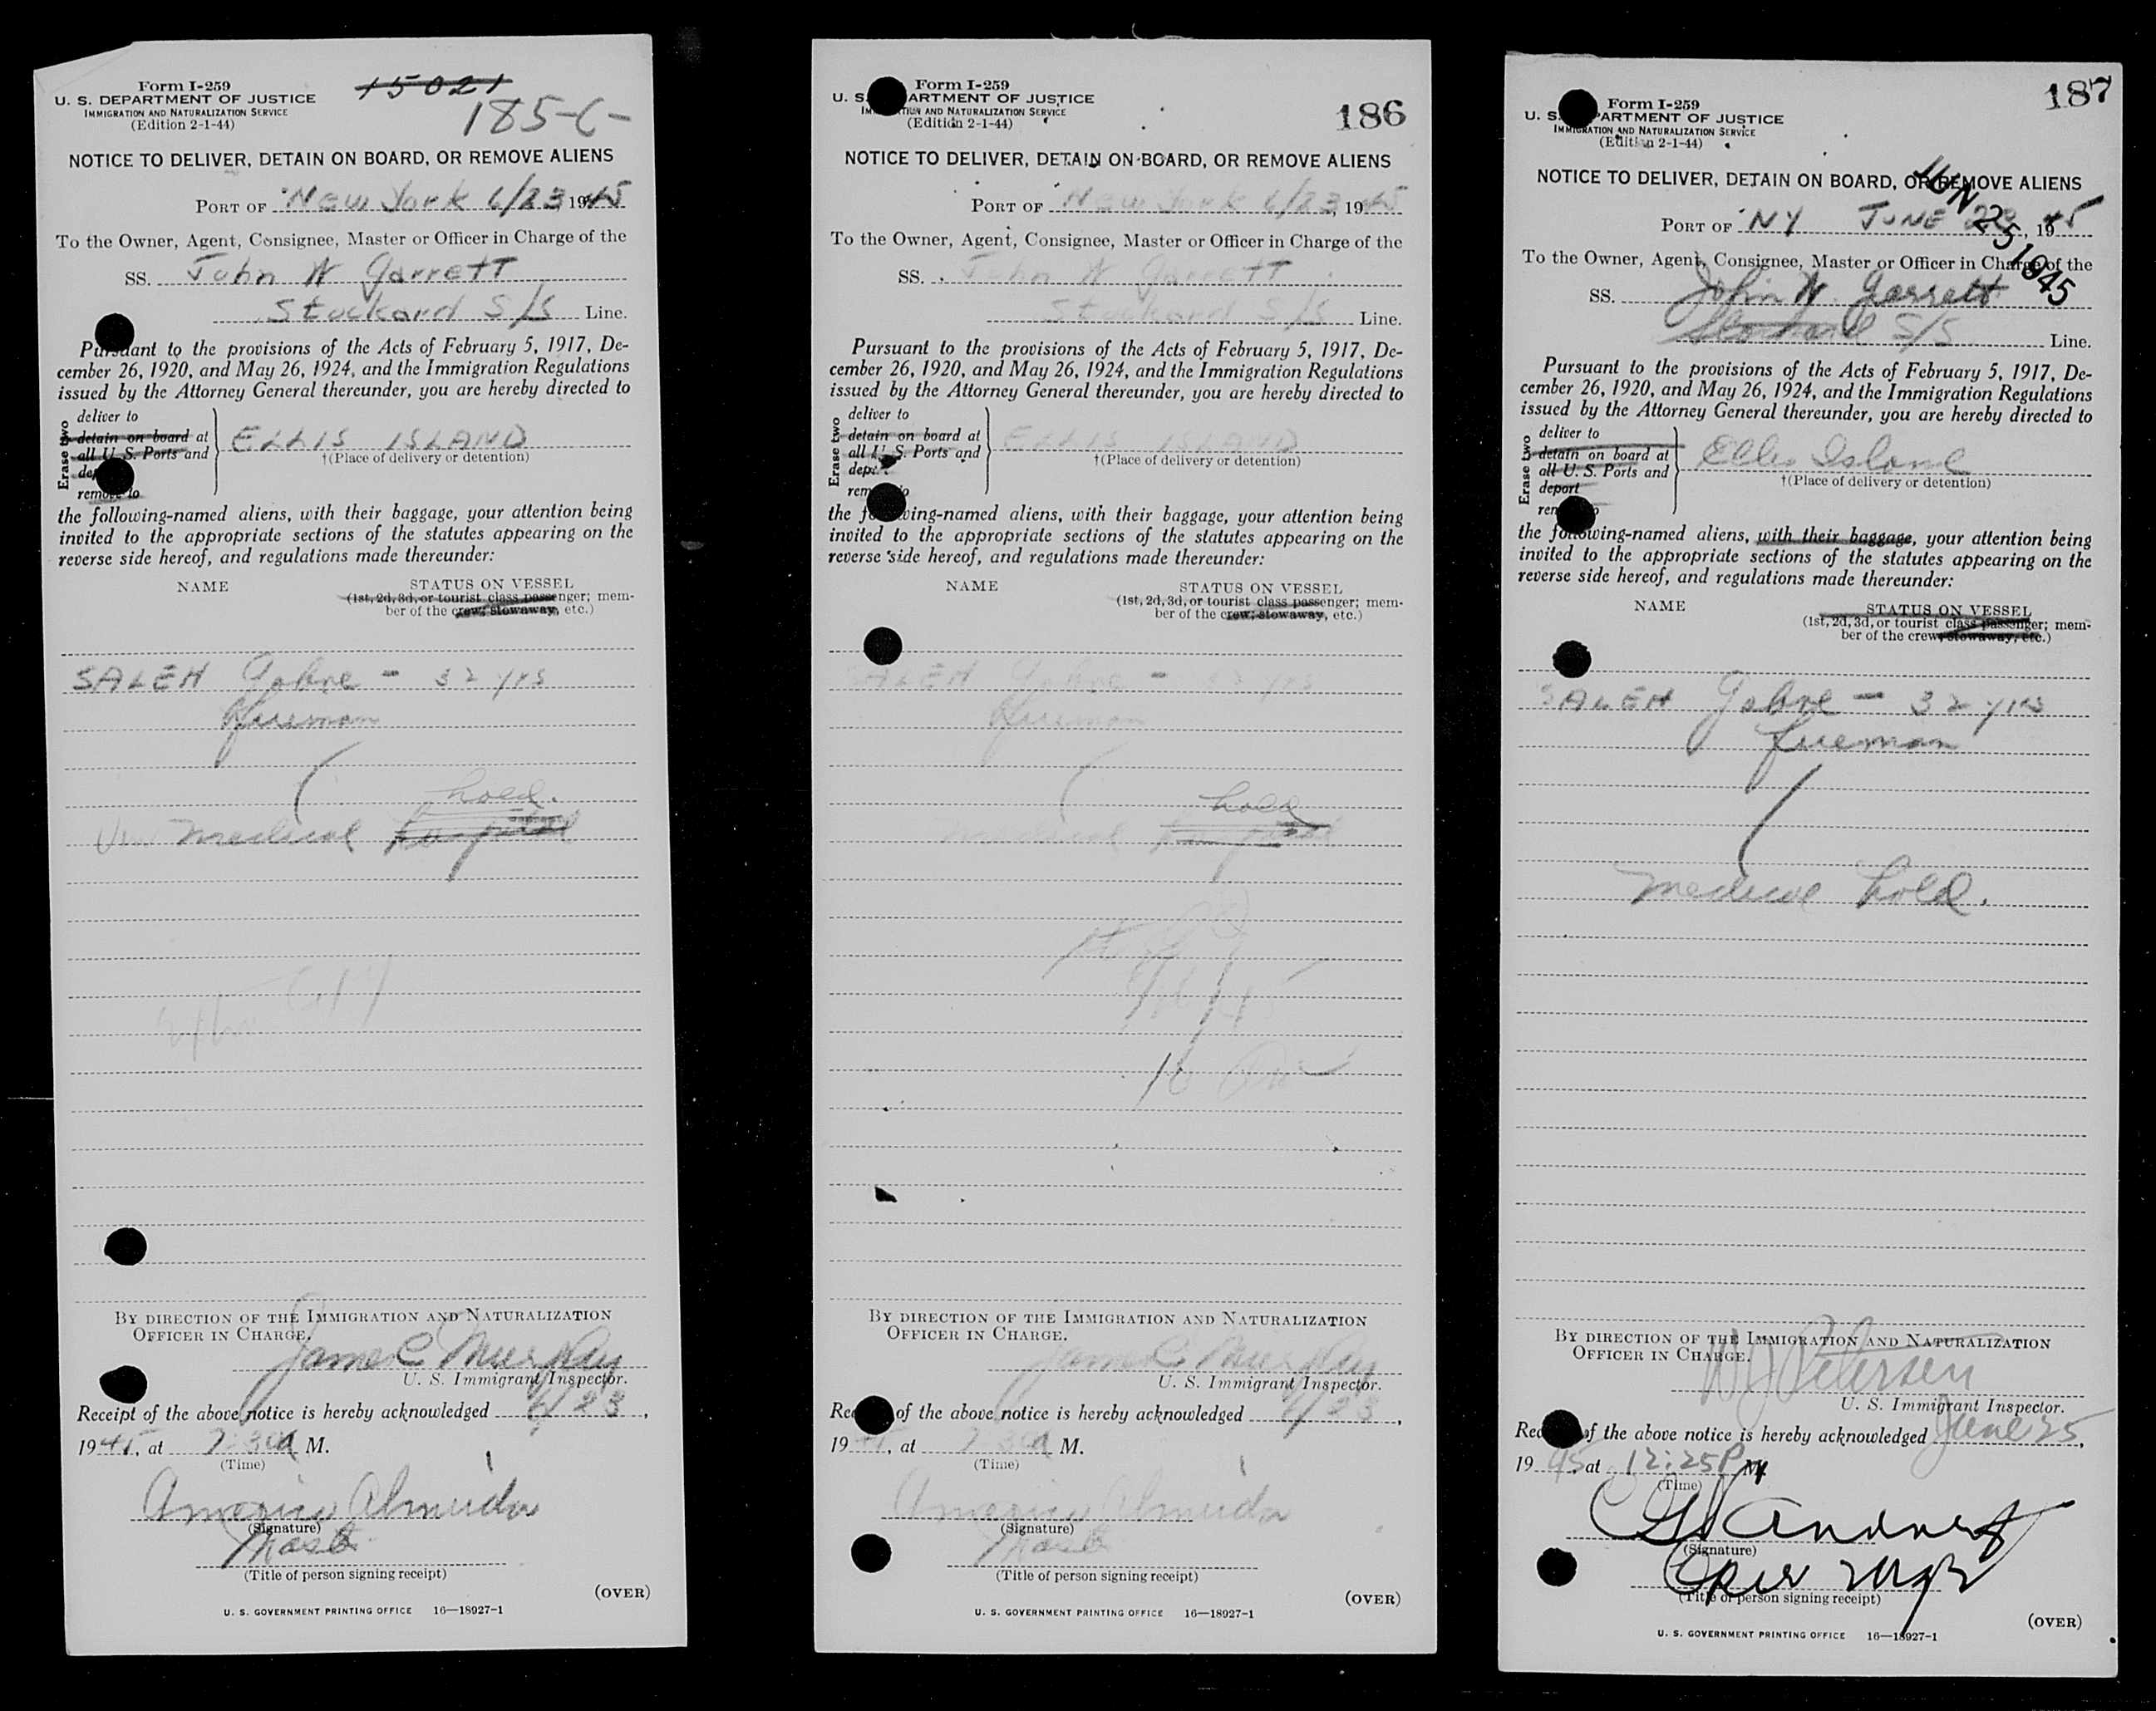 Form I-259
15021
U. S. DEPARTMENT OF JUSTICE
IMMIGRATION AND NATURALIZATION SERVICE
(Edition 2-1-44)
185-C-
NOTICE TO DELIVER, DETAIN ON BOARD, OR REMOVE ALIENS
PORT OF New York 6/23, 1945
To the Owner, Agent, Consignee, Master or Officer in Charge of the
SS. John W Garrett
Stockard S/S Line.
Pursuant to the provisions of the Acts of February 5, 1917, De-
cember 26, 1920, and May 26, 1924, and the Immigration Regulations
issued by the Attorney General thereunder, you are hereby directed to
Erase two
deliver to
detain on board at
all U. S. Ports and
remove to
ELLIS ISLAND
†(Place of delivery or detention)
the following-named aliens, with their baggage, your attention being
invited to the appropriate sections of the statutes appearing on the
reverse side hereof, and regulations made thereunder:
NAME STATUS ON VESSEL
(1st, 2d, 3d, or tourist class passenger; mem-
ber of the crew; stowaway, etc.)
SALEH Gabre - 32 yrs
fireman
hold.
medical hospital
BY DIRECTION OF THE IMMIGRATION AND NATURALIZATION
OFFICER IN CHARGE.
James C Murphy
U. S. Immigrant Inspector.
Receipt of the above notice is hereby acknowledged 6/23,
1945, at 7:30 A M.
(Time)
Americo Almeida
(Signature)
(Title of person signing receipt)
(OVER)
U. S. GOVERNMENT PRINTING OFFICE 16—18927-1
Form I-259
U. S. DEPARTMENT OF JUSTICE
IMMIGRATION AND NATURALIZATION SERVICE
(Edition 2-1-44)
186
NOTICE TO DELIVER, DETAIN ON BOARD, OR REMOVE ALIENS
PORT OF New York 6/23, 1945
To the Owner, Agent, Consignee, Master or Officer in Charge of the
SS. John W Garrett
Stockard S/S Line.
Pursuant to the provisions of the Acts of February 5, 1917, De-
cember 26, 1920, and May 26, 1924, and the Immigration Regulations
issued by the Attorney General thereunder, you are hereby directed to
Erase two
deliver to
detain on board at
all U. S. Ports and
ELLIS ISLAND
†(Place of delivery or detention)
the following-named aliens, with their baggage, your attention being
invited to the appropriate sections of the statutes appearing on the
reverse side hereof, and regulations made thereunder:
NAME STATUS ON VESSEL
(1st, 2d, 3d, or tourist class passenger; mem-
ber of the crew; stowaway, etc.)
SALEH Gabre - 32 yrs
fireman
hold
medical hospital
BY DIRECTION OF THE IMMIGRATION AND NATURALIZATION
OFFICER IN CHARGE.
James C Murphy
U. S. Immigrant Inspector.
Receipt of the above notice is hereby acknowledged 6/23,
1945, at 7:30 A M.
(Time)
Americo Almeida
(Signature)
(Title of person signing receipt)
(OVER)
U. S. GOVERNMENT PRINTING OFFICE 16—18927-1
187
Form I-259
U. S. DEPARTMENT OF JUSTICE
IMMIGRATION AND NATURALIZATION SERVICE
(Edition 2-1-44)
JUN 25 1945
NOTICE TO DELIVER, DETAIN ON BOARD, OR REMOVE ALIENS
PORT OF NY JUNE 23, 1945
To the Owner, Agent, Consignee, Master or Officer in Charge of the
SS. John W. Garrett
Stockard S/S Line.
Pursuant to the provisions of the Acts of February 5, 1917, De-
cember 26, 1920, and May 26, 1924, and the Immigration Regulations
issued by the Attorney General thereunder, you are hereby directed to
Erase two
deliver to
detain on board at
all U. S. Ports and
deport
Ellis Island
†(Place of delivery or detention)
the following-named aliens, with their baggage, your attention being
invited to the appropriate sections of the statutes appearing on the
reverse side hereof, and regulations made thereunder:
NAME STATUS ON VESSEL
(1st, 2d, 3d, or tourist class passenger; mem-
ber of the crew; stowaway, etc.)
SALEH Gabre - 32 yrs
fireman
medical hold.
BY DIRECTION OF THE IMMIGRATION AND NATURALIZATION
OFFICER IN CHARGE.
W J Petersen
U. S. Immigrant Inspector.
Receipt of the above notice is hereby acknowledged June 25,
1945, at 12:25 P M.
(Time)
(Signature)
Oper Mgr
(Title of person signing receipt)
(OVER)
U. S. GOVERNMENT PRINTING OFFICE 16—18927-1